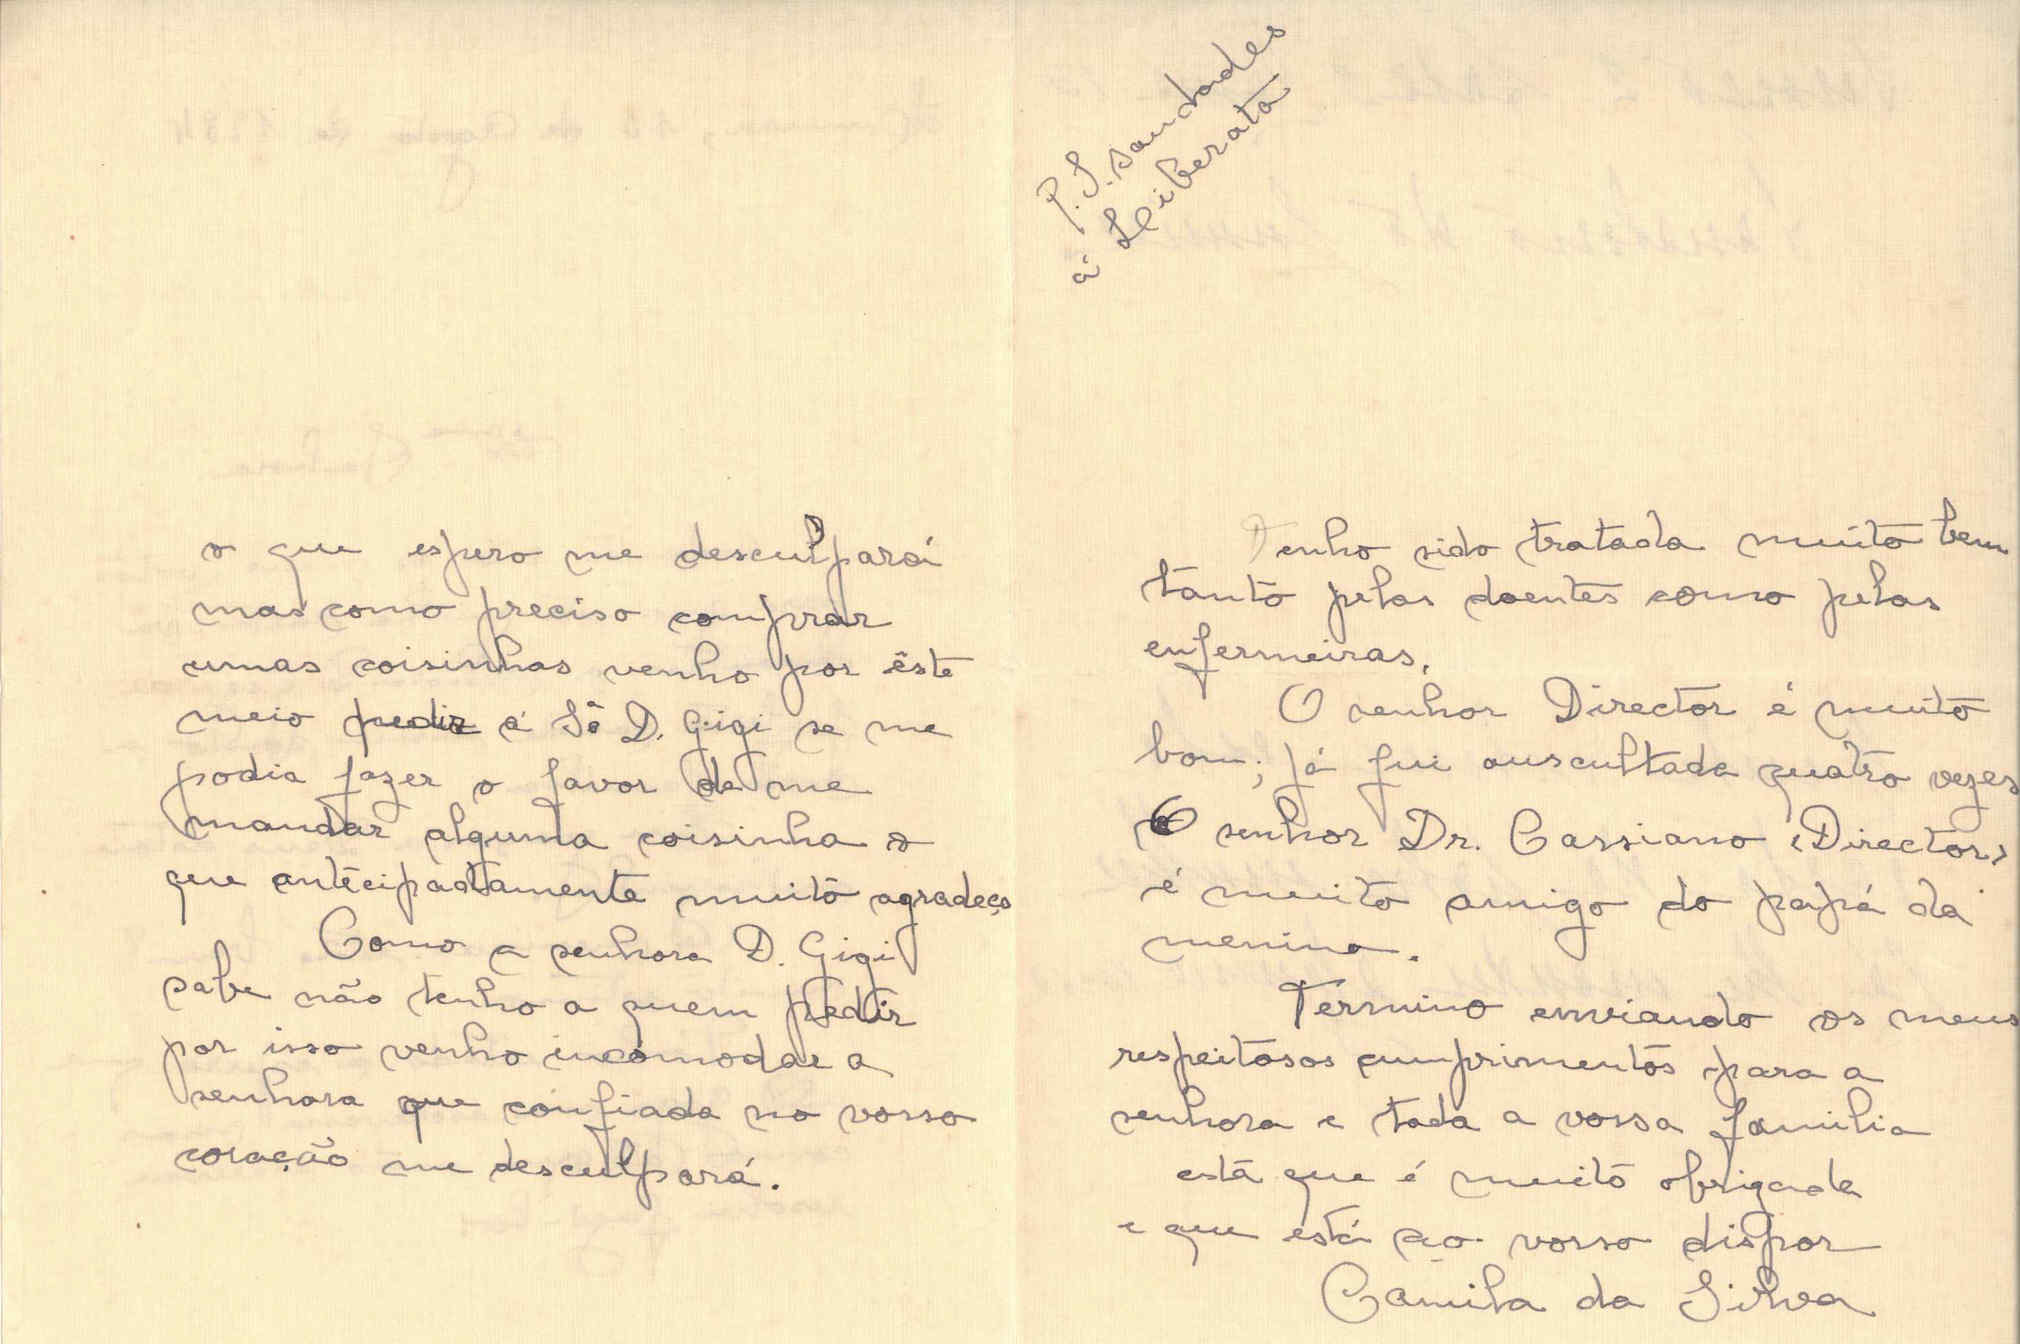 o que espero me desculpará
mas como preciso comprar
umas coisinhas venho por êste
meio pedir á Sª D. Gigi se me
podia fazer o favor de me
mandar alguma coisinha o
que antecipadamente muito agradeço
Como a senhora D. Gigi
sabe não tenho a quem pedir
por isso venho incomodar a
senhora que confiada no vosso
coração me desculpará.
P.S. saudades
á Liberata
Tenho sido tratada muito bem
tanto pelas doentes como pelas
enfermeiras.
O senhor Director é muito
bom; já fui auscultada quatro vezes
O senhor Dr. Cassiano (Director)
é muito amigo do papá da
menina.
Termino enviando os meus
respeitosos cumprimentos para a
senhora e toda a vossa familia
esta que é muito obrigada
e que está ao vosso dispor
Camila da Silva